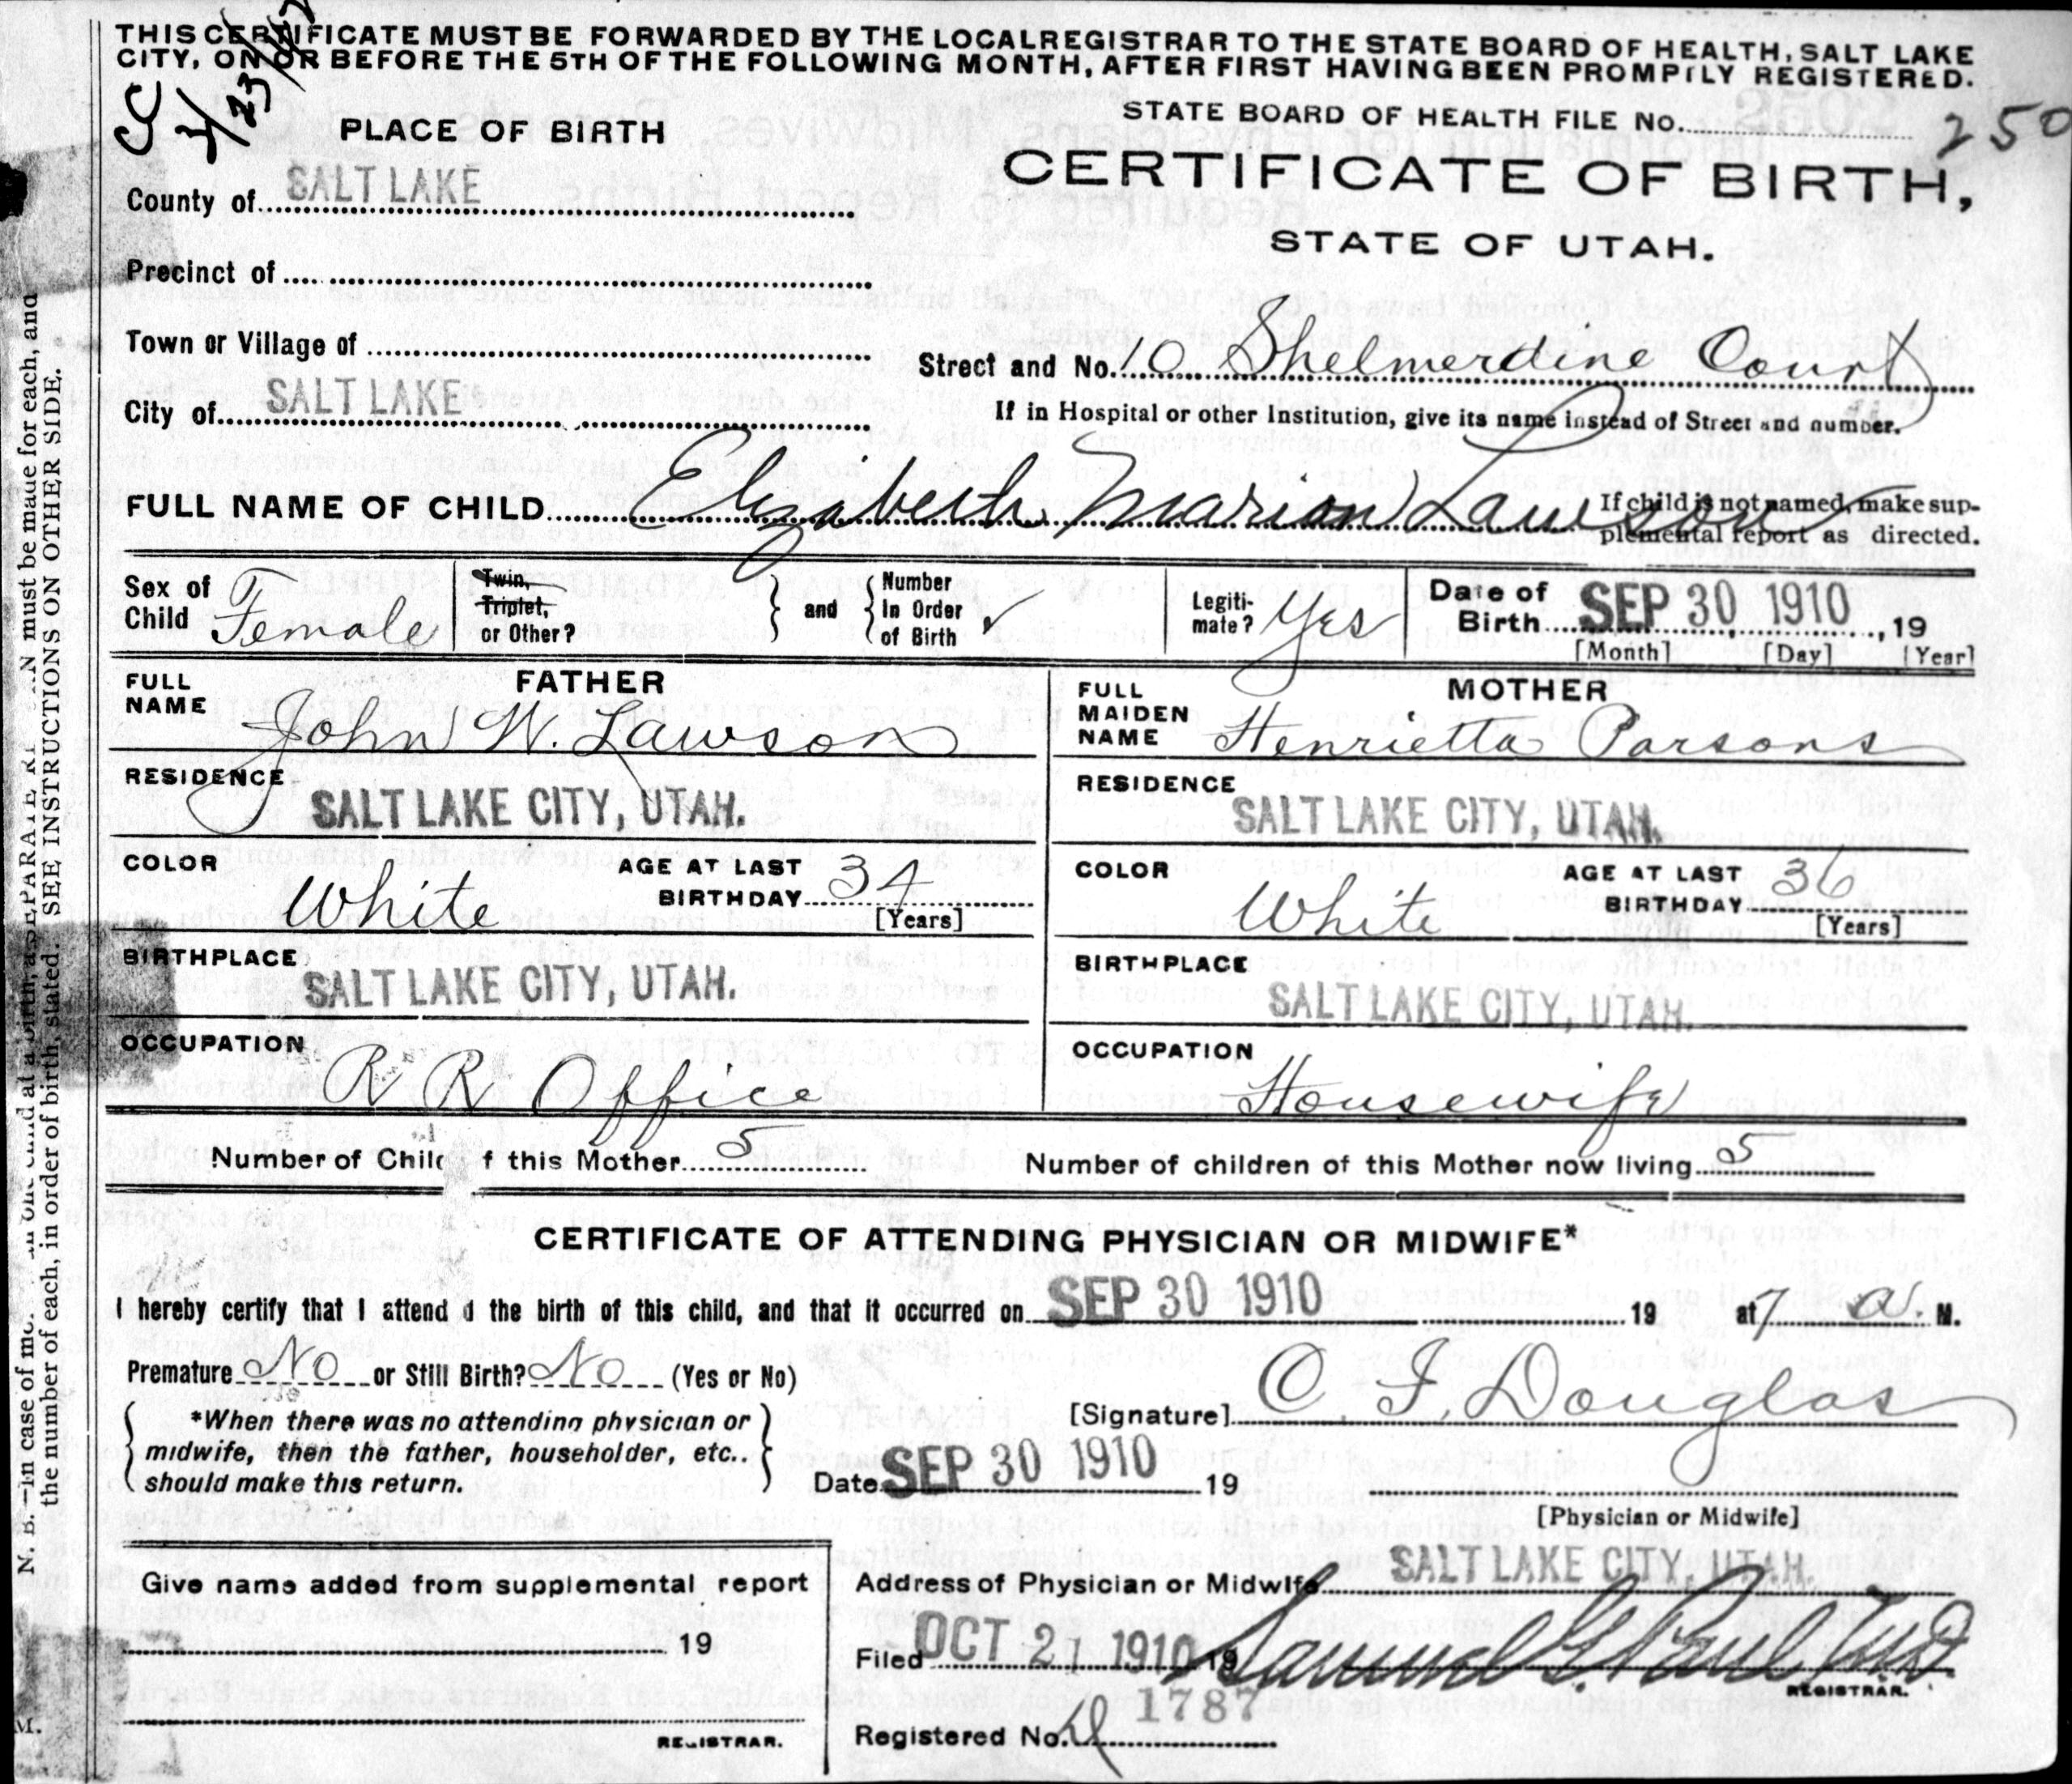 THIS CERTIFICATE MUST BE FORWARDED BY THE LOCAL REGISTRAR TO THE STATE BOARD OF HEALTH, SALT LAKE
CITY, ON OR BEFORE THE 5TH OF THE FOLLOWING MONTH, AFTER FIRST HAVING BEEN PROMPTLY REGISTERED.
STATE BOARD OF HEALTH FILE No. 250
PLACE OF BIRTH
CERTIFICATE OF BIRTH,
County of SALT LAKE
STATE OF UTAH.
Precinct of
Town or Village of
Street and No. 10 Shelmerdine Court
City of SALT LAKE
If in Hospital or other Institution, give its name instead of Street and number.
FULL NAME OF CHILD Elizabeth Marion Lawson
If child is not named, make sup-
plemental report as directed.
Sex of Child Female
Twin, Triplet, or Other?
and
Number In Order of Birth ✓
Legiti-mate? Yes
Date of Birth SEP 30 1910, 19
[Month] [Day] [Year]
FATHER
FULL NAME John W. Lawson
RESIDENCE SALT LAKE CITY, UTAH.
COLOR White
AGE AT LAST BIRTHDAY 34
[Years]
BIRTHPLACE SALT LAKE CITY, UTAH.
OCCUPATION R R Office
MOTHER
FULL MAIDEN NAME Henrietta Parsons
RESIDENCE SALT LAKE CITY, UTAH.
COLOR White
AGE AT LAST BIRTHDAY 36
[Years]
BIRTHPLACE SALT LAKE CITY, UTAH.
OCCUPATION Housewife
Number of Chil f this Mother 5
Number of children of this Mother now living 5
CERTIFICATE OF ATTENDING PHYSICIAN OR MIDWIFE*
I hereby certify that I attend d the birth of this child, and that it occurred on SEP 30 1910 19 at 7 a. M.
Premature No or Still Birth? No (Yes or No)
[Signature] C. F. Douglas
*When there was no attending physician or
midwife, then the father, householder, etc..
should make this return.
Date SEP 30 1910 19
[Physician or Midwife]
Give name added from supplemental report
19
REGISTRAR.
Address of Physician or Midwife SALT LAKE CITY, UTAH.
Filed OCT 21 1910 19 Samuel G. Paul M.D.
REGISTRAR.
Registered No. 1787
N. B.—In case of mo must be made for each, and
the number of each, in order of birth, stated. SEE INSTRUCTIONS ON OTHER SIDE.